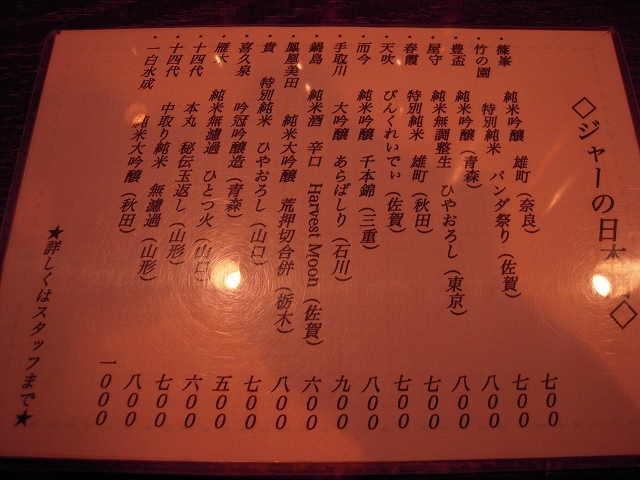 ◇ジャーの日本酒◇
・篠峯 純米吟醸 雄町(奈良) 七00
・竹の園 特別純米 パンダ祭り(佐賀) 七00
・豊盃 純米吟醸(青森) 八00
・屋守 純米無調整生 ひやおろし(東京) 八00
・春霞 特別純米 雄町(秋田) 七00
・天吹 ぴんくれいでぃ(佐賀) 七00
・而今 純米吟醸 千本錦(三重) 八00
・手取川 大吟醸 あらばしり(石川) 九00
・鍋島 純米酒 辛口 Harvest Moon(佐賀) 六00
・鳳凰美田 純米大吟醸 荒押切合併(栃木) 八00
・貴 特別純米 ひやおろし(山口) 七00
・喜久泉 吟冠吟醸造(青森) 五00
・雁木 純米無濾過 ひとつ火(山口) 六00
・十四代 本丸 秘伝玉返し(山形) 八00
・十四代 中取り純米 無濾過(山形) 八00
・一白水成 純米大吟醸(秋田) 一000
★詳しくはスタッフまで★